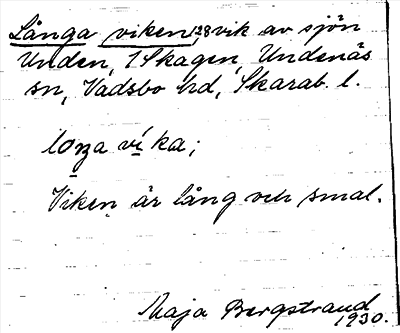 Långa viken, 128 vik av sjön
Unden, 1 Skagen, Undenäs
sn, Vadsbo hd, Skarab. l.
loŋa vi ka;
Viken är lång och smal.
Maja Bergstrand
1930.